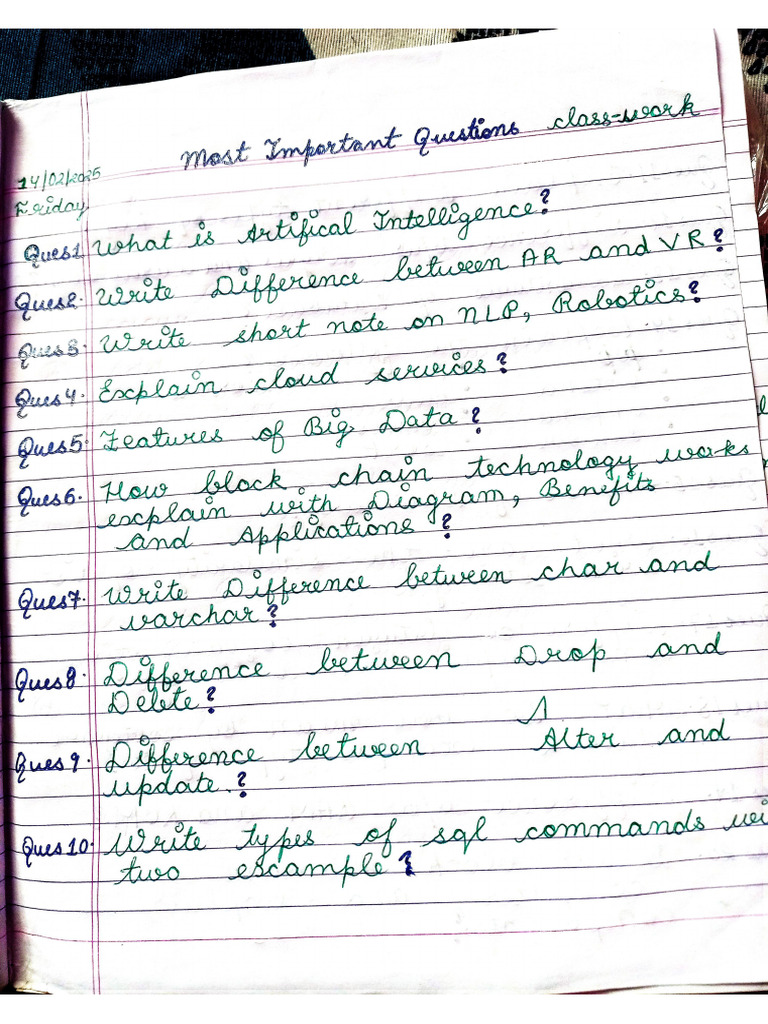 Most Important Questions class-work
14/02/2025
Friday
Ques1 What is Artifical Intelligence?
Ques2. Write Difference between AR and VR?
Ques3. Write short note on NLP, Robotics?
Ques4. Explain cloud services?
Ques5. Features of Big Data?
Ques6. How block chain technology works
explain with Diagram, Benefits
and Applications?
Ques7. Write Difference between char and
varchar?
Ques8. Difference between Drop and
Delete?
Ques9. Difference between Alter and
update.?
Ques10. Write types of sql commands wi
two escample?